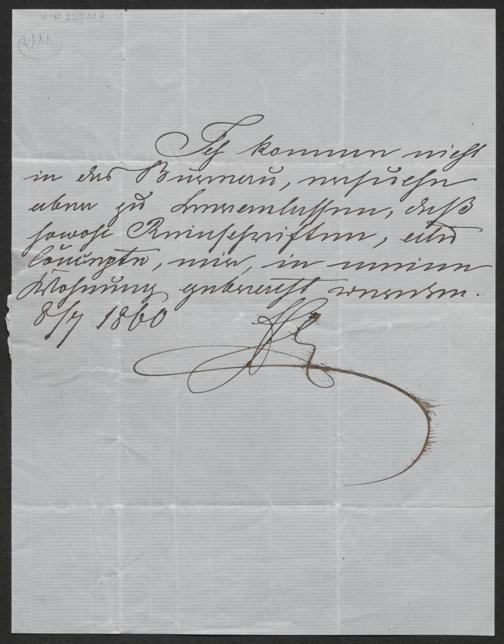 Ich komme nicht
in das Bureau, ersuche
aber zu veranlassen, daß
sowohl Reinschriften, als
Concepte, mir in meine
Wohnung gebracht werden.
8/7 1860